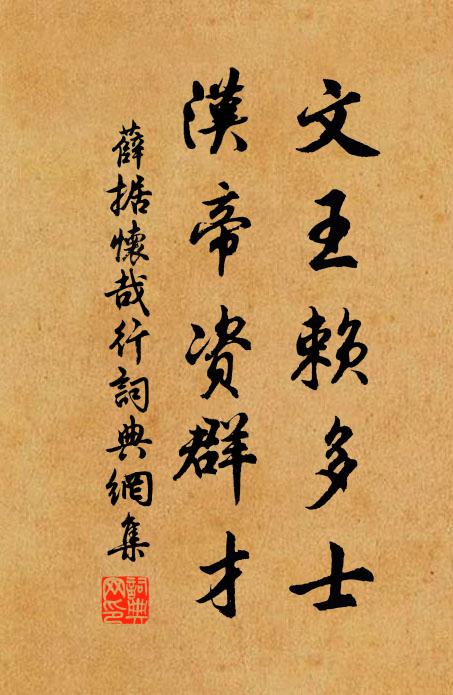 文王賴多士
漢帝資群才
薛据懷哉行詞典網集
詞典网印